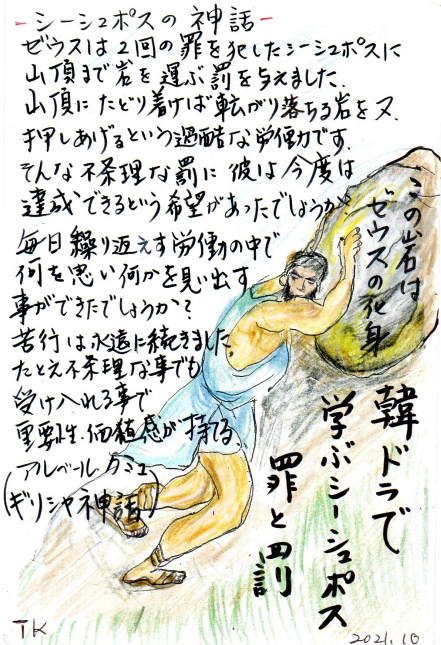 -シーシュポスの神話-
ゼウスは2回の罪を犯したシーシュポスに
山頂まで岩を運ぶ罰を与えました.
山頂にたどり着けば転がり落ちる岩を又、
押しあげるという過酷な労働です.
そんな不条理な罰に彼は今度は
達成できるという希望があったでしょうか?
毎日繰り返えす労働の中で
何を思い何かを見い出す
事ができたでしょうか?
苦行は永遠に続きました。
たとえ不条理な事でも
受け入れる事で
重要性・価値感が持てる、
(アルベール・カミュ
ギリシャ神話)
この岩は
ゼウスの化身
韓ドラで
学ぶシーシュポス
罪と罰
TK
2021.10